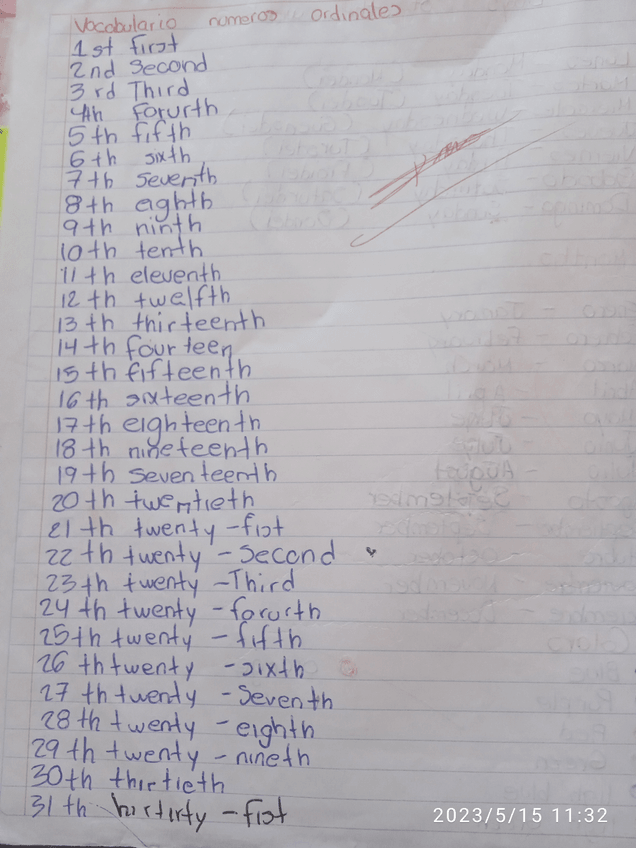 Vocabulario numeros ordinales
1st first
2nd Second
3rd Third
4th forurth
5th fifth
6th sixth
7th Seventh
8th eighth
9th ninth
10th tenth
11th eleventh
12th twelfth
13th thirteenth
14th fourteen
15th fifteenth
16th sixteenth
17th eighteenth
18th nineteenth
19th Seventeenth
20th twentieth
21th twenty-fist
22th twenty-Second
23th twenty-Third
24th twenty-forurth
25th twenty-fifth
26th twenty-sixth
27th twenty-Seventh
28th twenty-eighth
29th twenty-nineth
30th thirtieth
31th -fist
2023/5/15 11:32